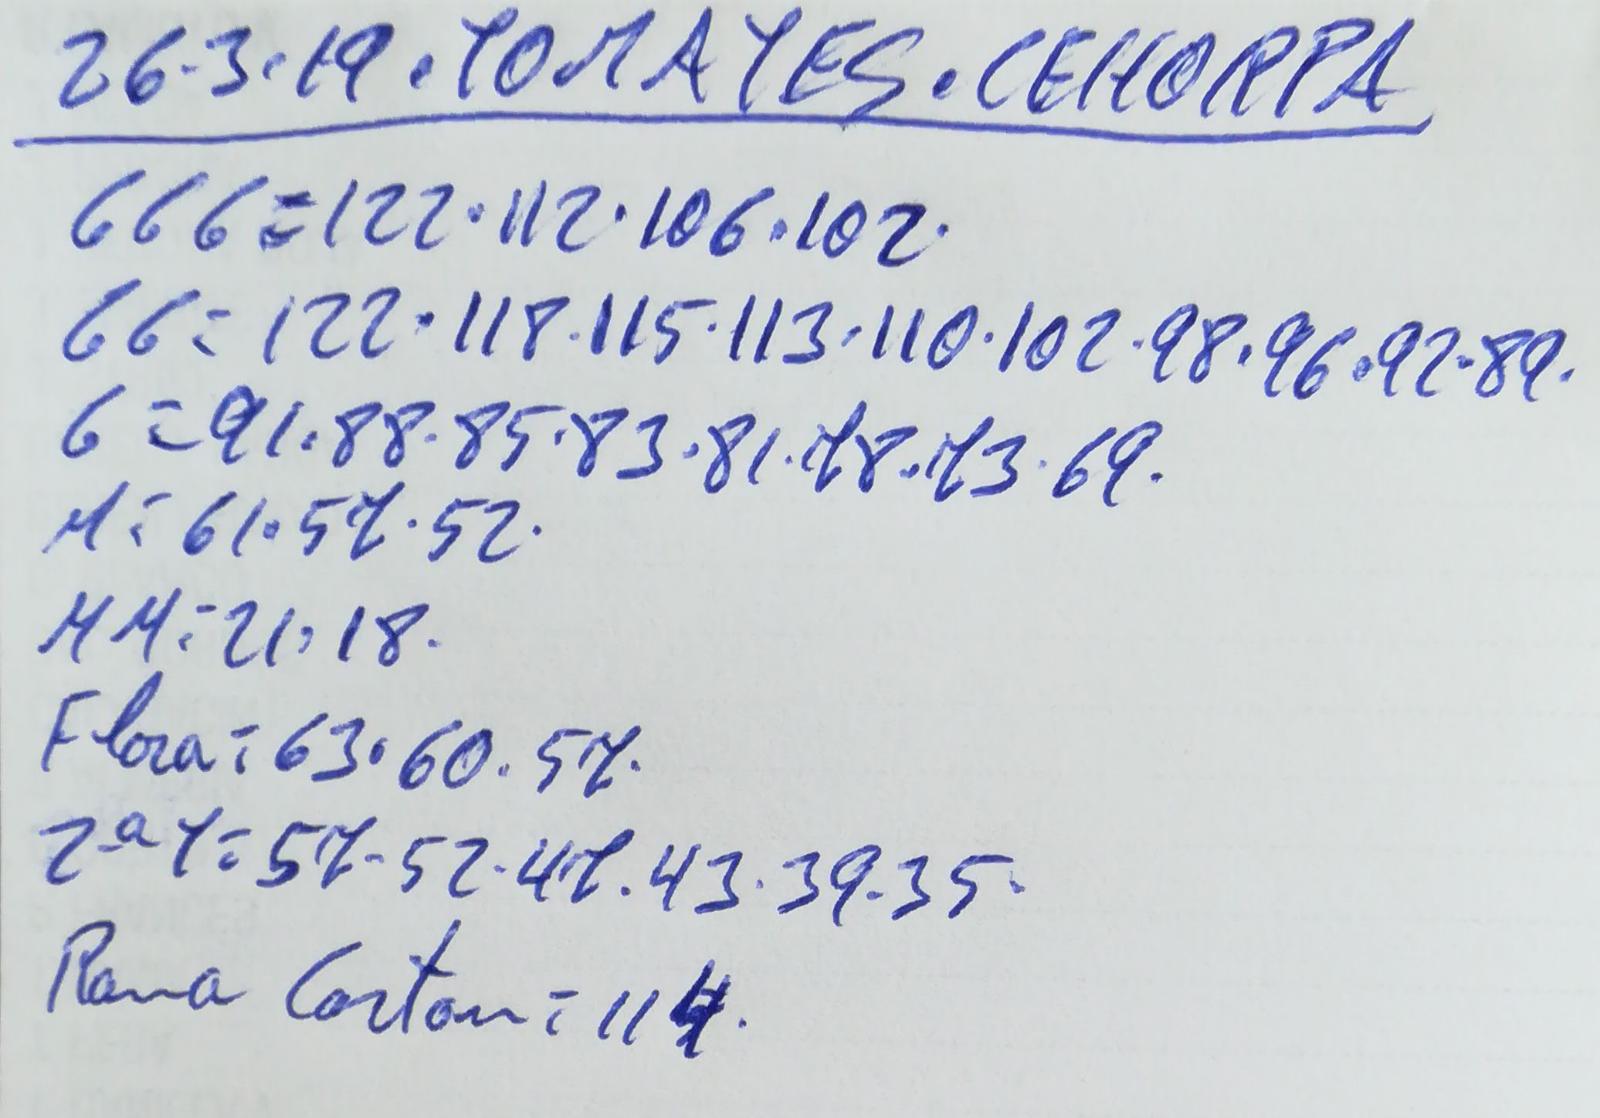 26.3.19.TOMATES.CEHORPA
GGG=122.112.106.102.
GG=122.118.115.113.110.102.98.96.92.89.
G=91.88.85.83.81.78.73.69.
M=61.57.52.
MM=21.18.
Flora=63.60.57.
2ªT=57-52.47.43.39.35.
Rama Carton=114.